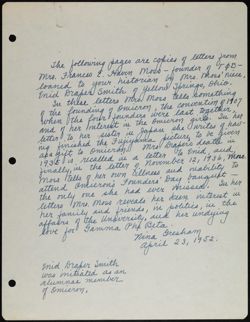 The following pages are copies of letters from
Mrs. Frances E. Haven Moss - founder of Γ Φ B -
loaned to your historian by Mrs. Moss' niece,
Enid Draper Smith of Yellow Springs, Ohio.
In three letters Mrs. Moss tells something
of the founding of Omicron, the convention of 1907
when the four founders were last together,
and of her interest in the Omicron girls. In her
letter to her sister in Japan she writes of having
finished the Fujiyama picture to be given
as a gift to Omicron. Mrs. Draper's death in
1936 is recalled in a letter to Enid, and,
finally, in the letter of November 12, 1936, Mrs.
Moss tells of her own illness and inability to
attend Omicron's Founders Day banquet -
the only one she had ever missed. In her
letters Mrs. Moss reveals her keen interest in
her family and friends, in politics, in the
affairs of the University, and her undying
love for Gamma Phi Beta
Nina Gresham
April 23, 1952.
Enid Draper Smith
was initiated as an
alumnae member
of Omicron.